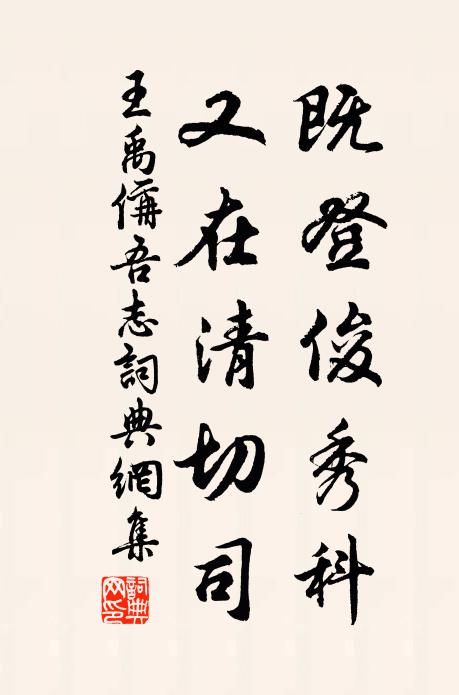 既登俊秀科
又在清切司
王禹偁吾志詞典網集
詞典網印